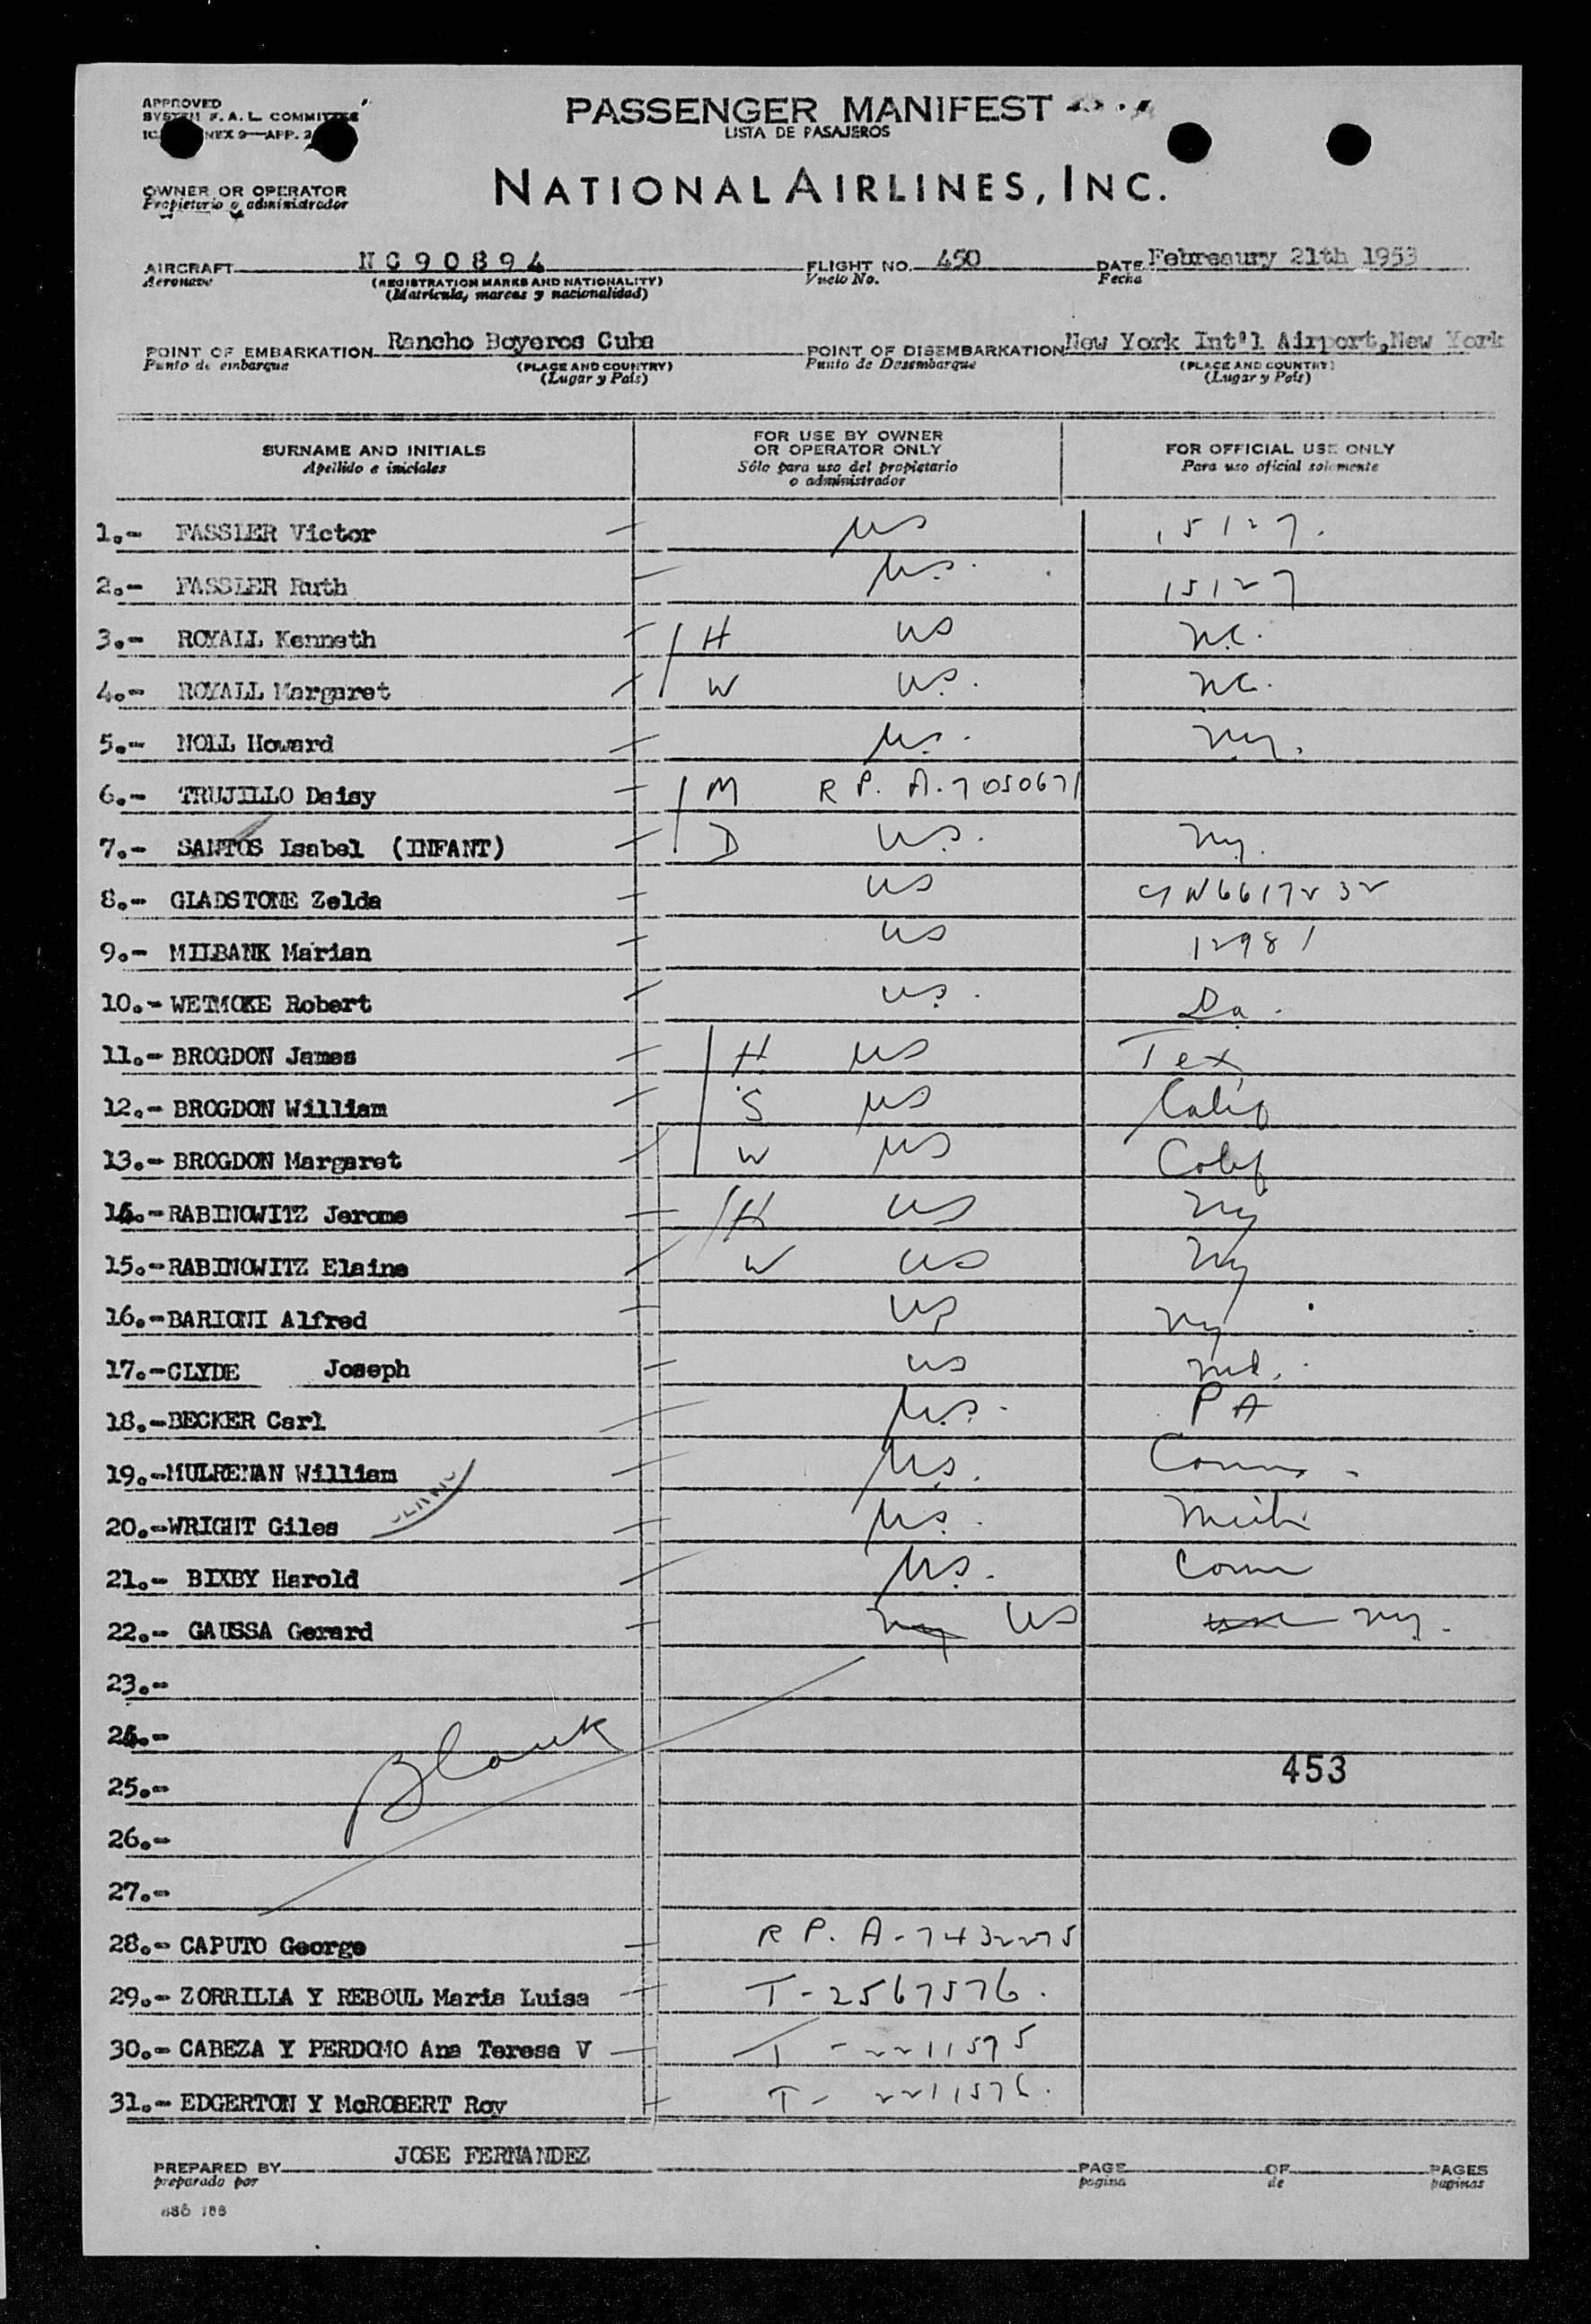 APPROVED
SYSTEM F. A. L. COMMITTEE
NEX 9—APP. 2
PASSENGER MANIFEST
LISTA DE PASAJEROS
OWNER OR OPERATOR
Propietario o administrador
NATIONAL AIRLINES, INC.
AIRCRAFT NC90894 FLIGHT NO. 450 DATE Febreaury 21th 1953
Aeronave (REGISTRATION MARKS AND NATIONALITY) Vuelo No. Fecha
(Matrícula, marcas y nacionalidad)
POINT OF EMBARKATION Rancho Boyeros Cuba POINT OF DISEMBARKATION New York Int'l Airport,New York
Punto de embarque (PLACE AND COUNTRY) Punto de Desembarque (PLACE AND COUNTRY)
(Lugar y País) (Lugar y País)
SURNAME AND INITIALS
Apellido e iniciales
FOR USE BY OWNER
OR OPERATOR ONLY
Sólo para uso del propietario
o administrador
FOR OFFICIAL USE ONLY
Para uso oficial solamente
1.- FASSLER Victor US 15127.
2.- FASSLER Ruth U.S. 15127
3.- ROYALL Kenneth H US N.C.
4.- ROYALL Margaret W U.S. NC.
5.- NOLL Howard U.S. Ny.
6.- TRUJILLO Daisy M R P. A-7050671
7.- SANTOS Isabel (INFANT) D U.S. Ny.
8.- GLADSTONE Zelda US CN6617232
9.- MILBANK Marian US 12981
10.- WETMOKE Robert U.S.
11.- BROGDON James H US Tex
12.- BROGDON William S US Calif
13.- BROGDON Margaret W US Calif
14.- RABINOWITZ Jerome H US Ny
15.- RABINOWITZ Elaine W US Ny
16.- BARIONI Alfred US Ny
17.- CLYDE Joseph US Md.
18.- BECKER Carl U.S. PA
19.- MULRENAN William U.S. Conn.
20.- WRIGHT Giles U.S. Mich
21.- BIXBY Harold U.S. Conn
22.- GAUSSA Gerard Ny US Ny.
23.-
24.-
Blank
453
25.-
26.-
27.-
28.- CAPUTO George R P. A-7432275
29.- ZORRILLA Y REBOUL Maria Luisa T-2567576.
30.- CABEZA Y PERDOMO Ana Teresa V T-2211575
31.- EDGERTON Y McROBERT Roy T-2211576.
PREPARED BY JOSE FERNANDEZ PAGE OF PAGES
preparado por pagina de paginas